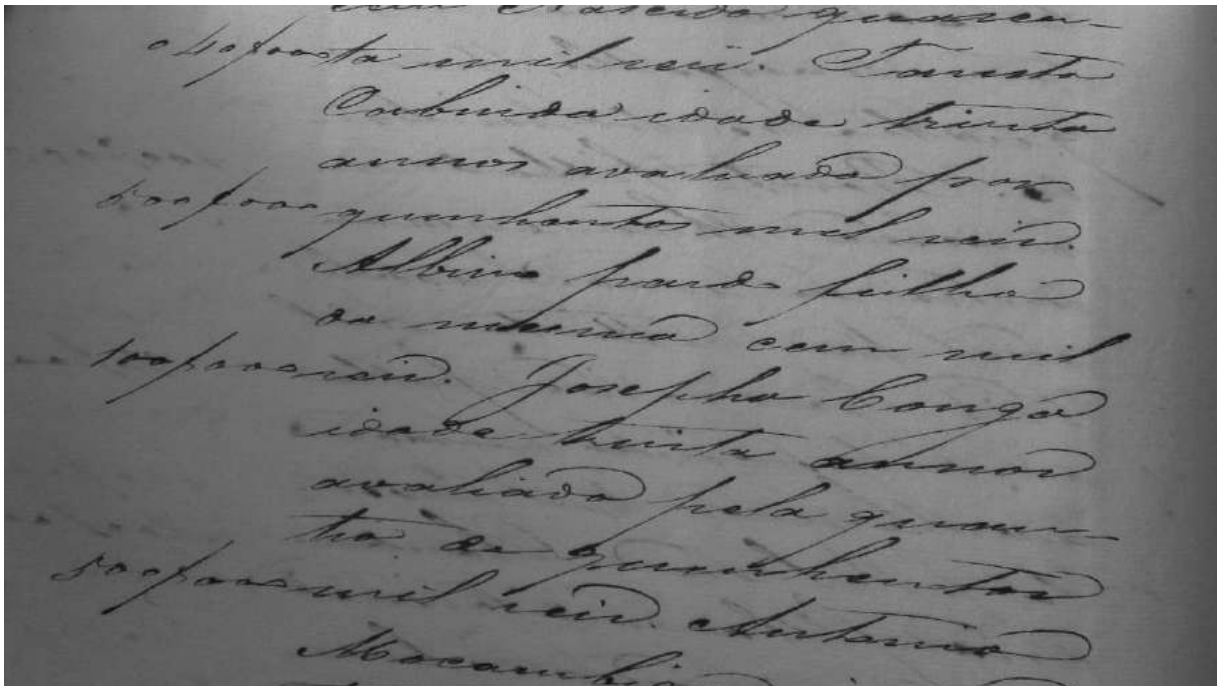 cem Nascido quaren-
040$000 ta mil reis. Fausta
Cabinda idade trinta
annos avaliada por
500$000 quinhentos mil reis.
Albino pardo filho
da mesma cem mil
100$000 reis. Josepha Congo
idade trinta annos
avaliada pela quan-
tia de quinhentos
500$000 mil reis. Antonio
Mocambique